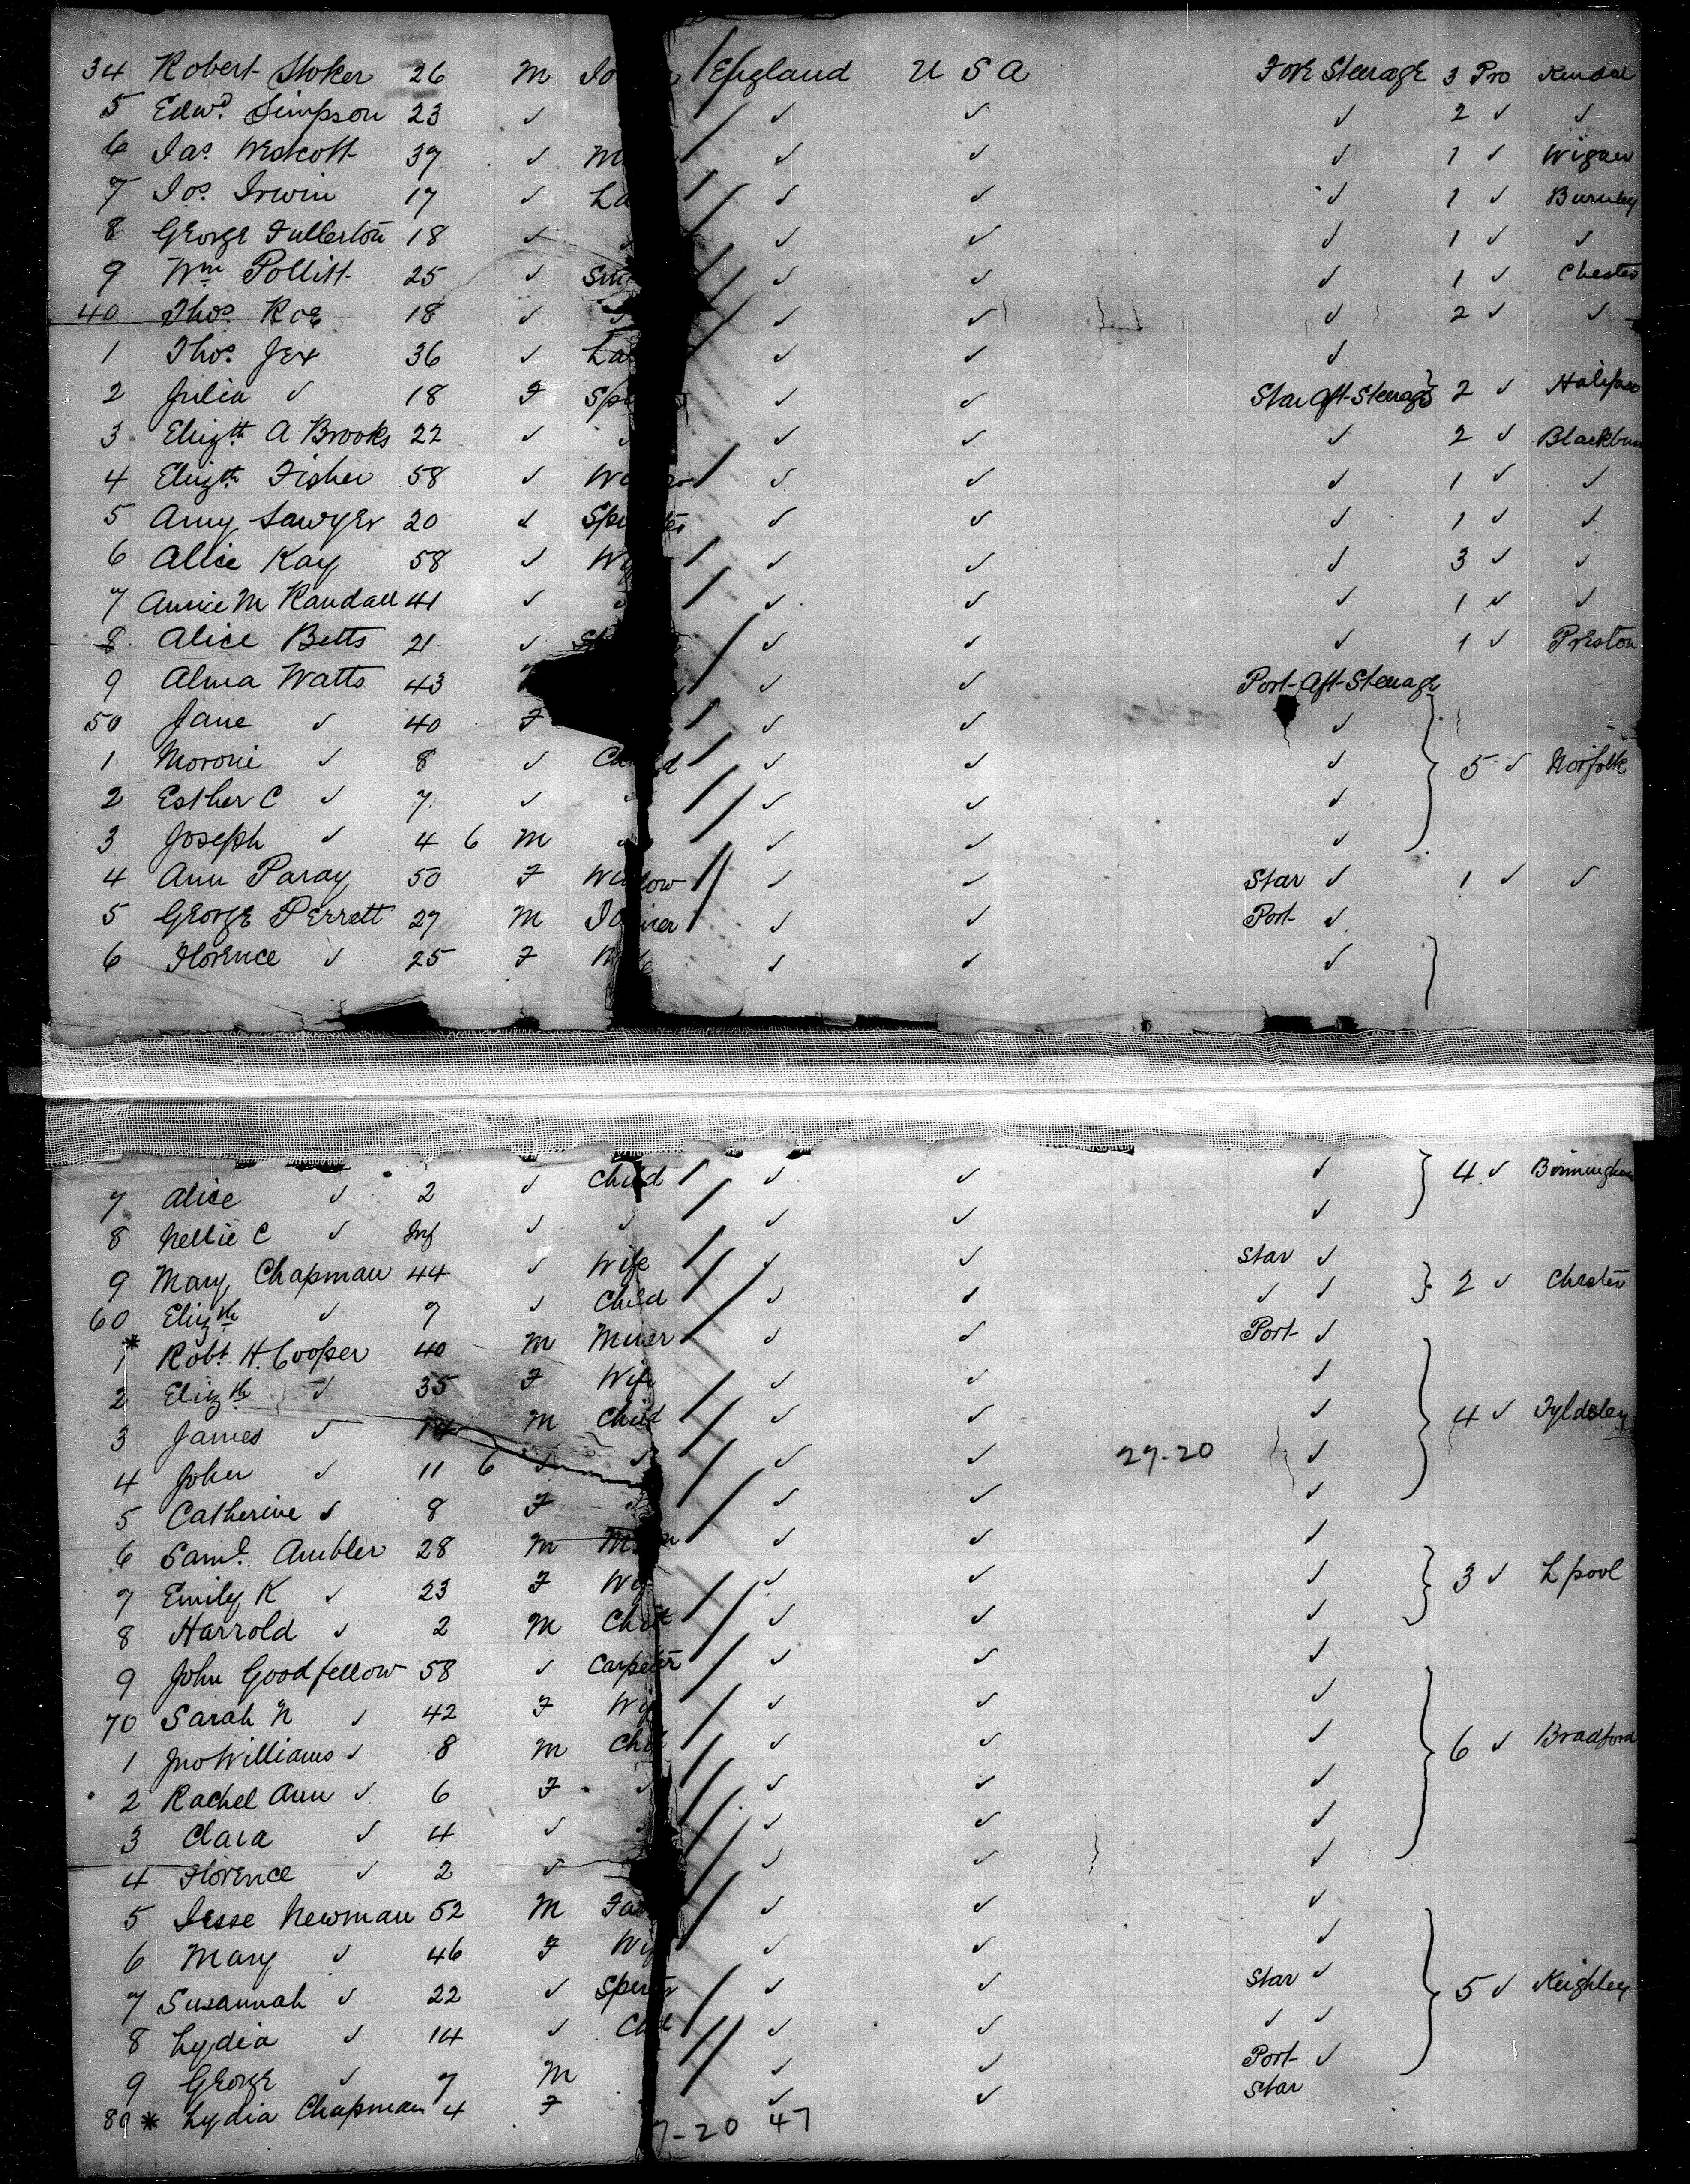 34 Robert Stoker 26 M Jo England U S A Fore Steerage 3 Pro Kendal
5 Edwd. Simpson 23 ✓ ✓ ✓ ✓ 2 ✓ ✓
6 Jas. Westcott 37 ✓ M ✓ ✓ ✓ 1 ✓ Wigan
7 Jos. Irwin 17 ✓ La ✓ ✓ ✓ 1 ✓ Burnley
8 George Fullerton 18 ✓ ✓ ✓ ✓ 1 ✓ ✓
9 Wm Pollitt 25 ✓ Smi ✓ ✓ ✓ 1 ✓ Chester
40 Thos. Roe 18 ✓ ✓ ✓ ✓ 2 ✓ ✓
1 Thos. Jex 36 ✓ La ✓ ✓ ✓
2 Julia ✓ 18 F Sp ✓ ✓ Star Aft Steerage } 2 ✓ Halifax
3 Elizth A Brooks 22 ✓ ✓ ✓ ✓ ✓ 2 ✓ Blackburn
4 Elizth Fisher 58 ✓ W ✓ ✓ ✓ 1 ✓ ✓
5 Amy Sawyer 20 ✓ Spi ter ✓ ✓ ✓ 1 ✓ ✓
6 Alice Kay 58 ✓ W ✓ ✓ ✓ 3 ✓ ✓
7 Annie M Randall 41 ✓ ✓ ✓ ✓ 1 ✓ ✓
8 Alice Betts 21 ✓ S ✓ ✓ ✓ 1 ✓ Preston
9 Alma Watts 43 ✓ ✓ Port Aft Steerage
50 Jane ✓ 40 F ✓ ✓ ✓
1 Moroni ✓ 8 ✓ Ch d ✓ ✓ ✓ } 5 ✓ Norfolk
2 Esther C ✓ 7 ✓ ✓ ✓ ✓
3 Joseph ✓ 4 6 M ✓ ✓ ✓
4 Ann Paray 50 F Widow ✓ ✓ Star ✓ 1 ✓ ✓
5 George Perrett 27 M Joiner ✓ ✓ Port ✓
6 Florence ✓ 25 F W ✓ ✓ ✓ }
7 Alice ✓ 2 ✓ Child ✓ ✓ ✓ } 4 ✓ Birmingham
8 Nellie C ✓ Inf ✓ ✓ ✓ ✓ ✓
9 Mary Chapman 44 ✓ Wife ✓ ✓ Star ✓
60 Elizth ✓ 7 ✓ Child ✓ ✓ ✓ ✓ } 2 ✓ Chester
*1 Robt. H. Cooper 40 M Miner ✓ ✓ Port ✓
2 Elizth ✓ 35 F Wife ✓ ✓ ✓
3 James ✓ 14 M Child ✓ ✓ ✓ } 4 ✓ Tyldsley
4 John ✓ 11 6 ✓ ✓ ✓ ✓ 27-20 ✓
5 Catherine ✓ 8 F ✓ ✓ ✓
6 Saml. Ambler 28 M M n ✓ ✓ ✓
7 Emily K ✓ 23 F Wi ✓ ✓ ✓ } 3 ✓ L pool
8 Harrold ✓ 2 M Child ✓ ✓ ✓
9 John Goodfellow 58 ✓ Carpenter ✓ ✓ ✓
70 Sarah N ✓ 42 F Wi ✓ ✓ ✓
1 Jno Williams ✓ 8 M Chi ✓ ✓ ✓ } 6 ✓ Bradford
2 Rachel Ann ✓ 6 F ✓ ✓ ✓ ✓
3 Clara ✓ 4 ✓ ✓ ✓ ✓
4 Florence ✓ 2 ✓ ✓ ✓ ✓
5 Jesse Newman 52 M Fa ✓ ✓ ✓
6 Mary ✓ 46 F Wi ✓ ✓ ✓
7 Susannah ✓ 22 ✓ Spinster ✓ ✓ Star ✓ } 5 ✓ Keighley
8 Lydia ✓ 14 ✓ Ch d ✓ ✓ ✓ ✓
9 George ✓ 7 M ✓ ✓ Port ✓
80 * Lydia Chapman 4 F ✓ ✓ Star
7-20 47